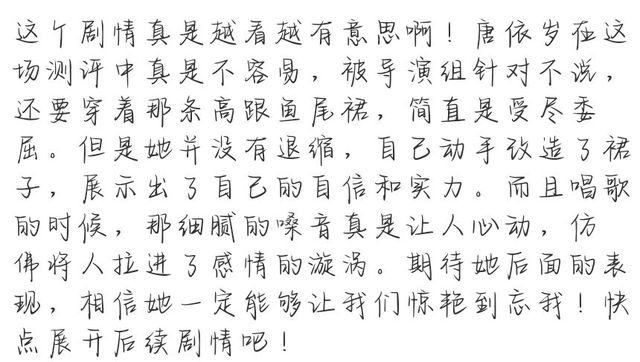 这个剧情真是越看越有意思啊！唐依岁在这
场测评中真是不容易，被导演组针对不说，
还要穿着那条高跟鱼尾裙，简直是受尽委
屈。但是她并没有退缩，自己动手改造了裙
子，展示出了自己的自信和实力。而且唱歌
的时候，那细腻的嗓音真是让人心动，仿
佛将人拉进了感情的漩涡。期待她后面的表
现，相信她一定能够让我们惊艳到忘我！快
点展开后续剧情吧！